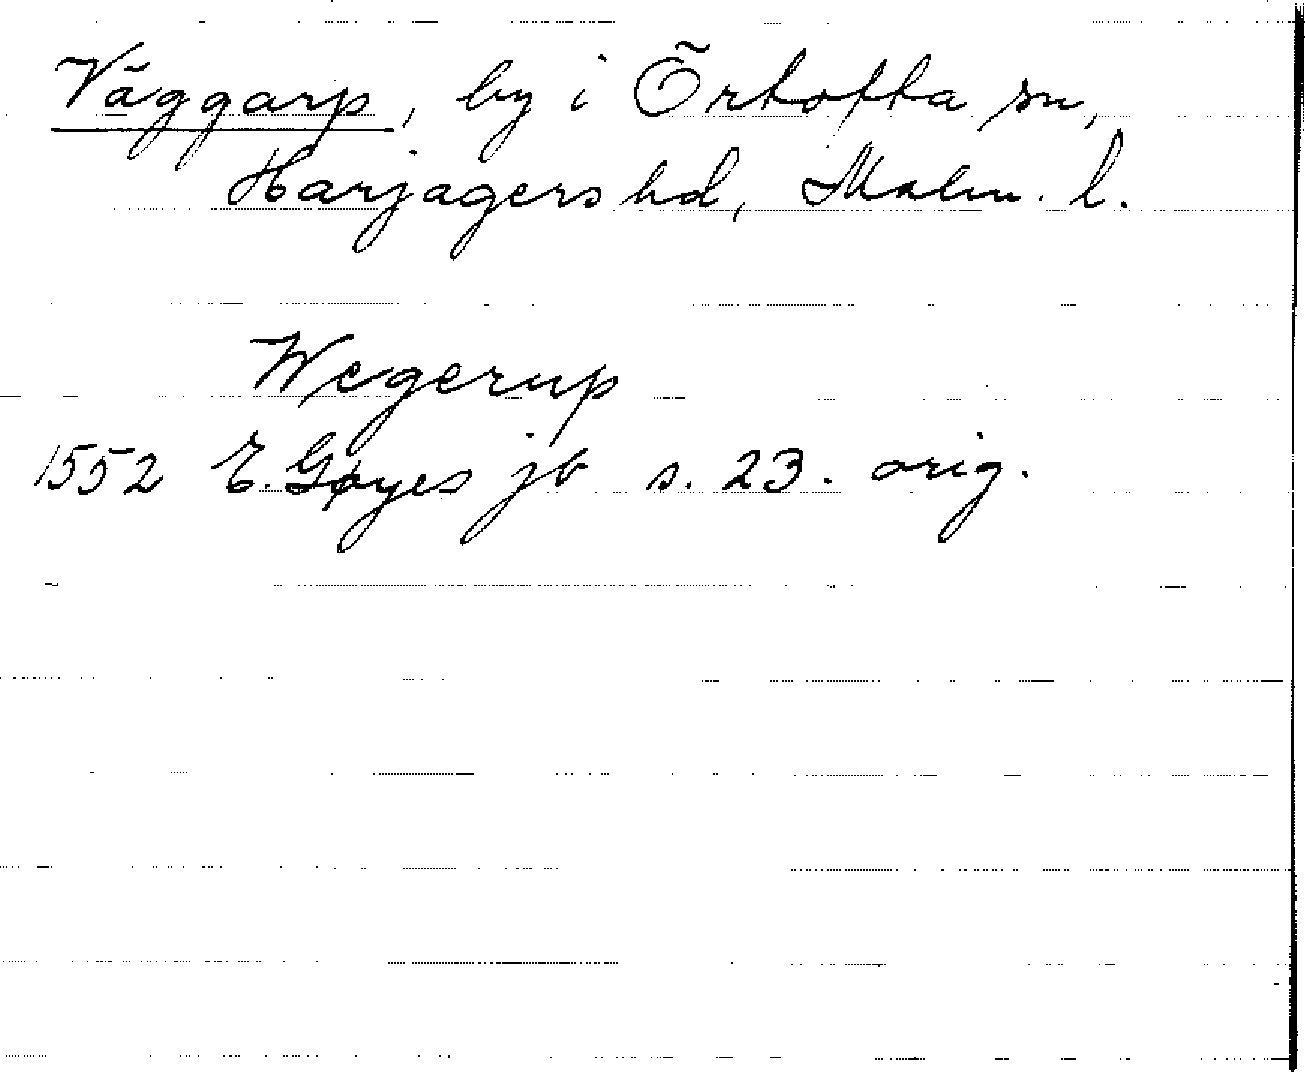 Väggarp, by i Örtofta sn,
Harjagers hd, Malm. l.
Wegerup
1552 E. Gøyes jb s. 23. orig.